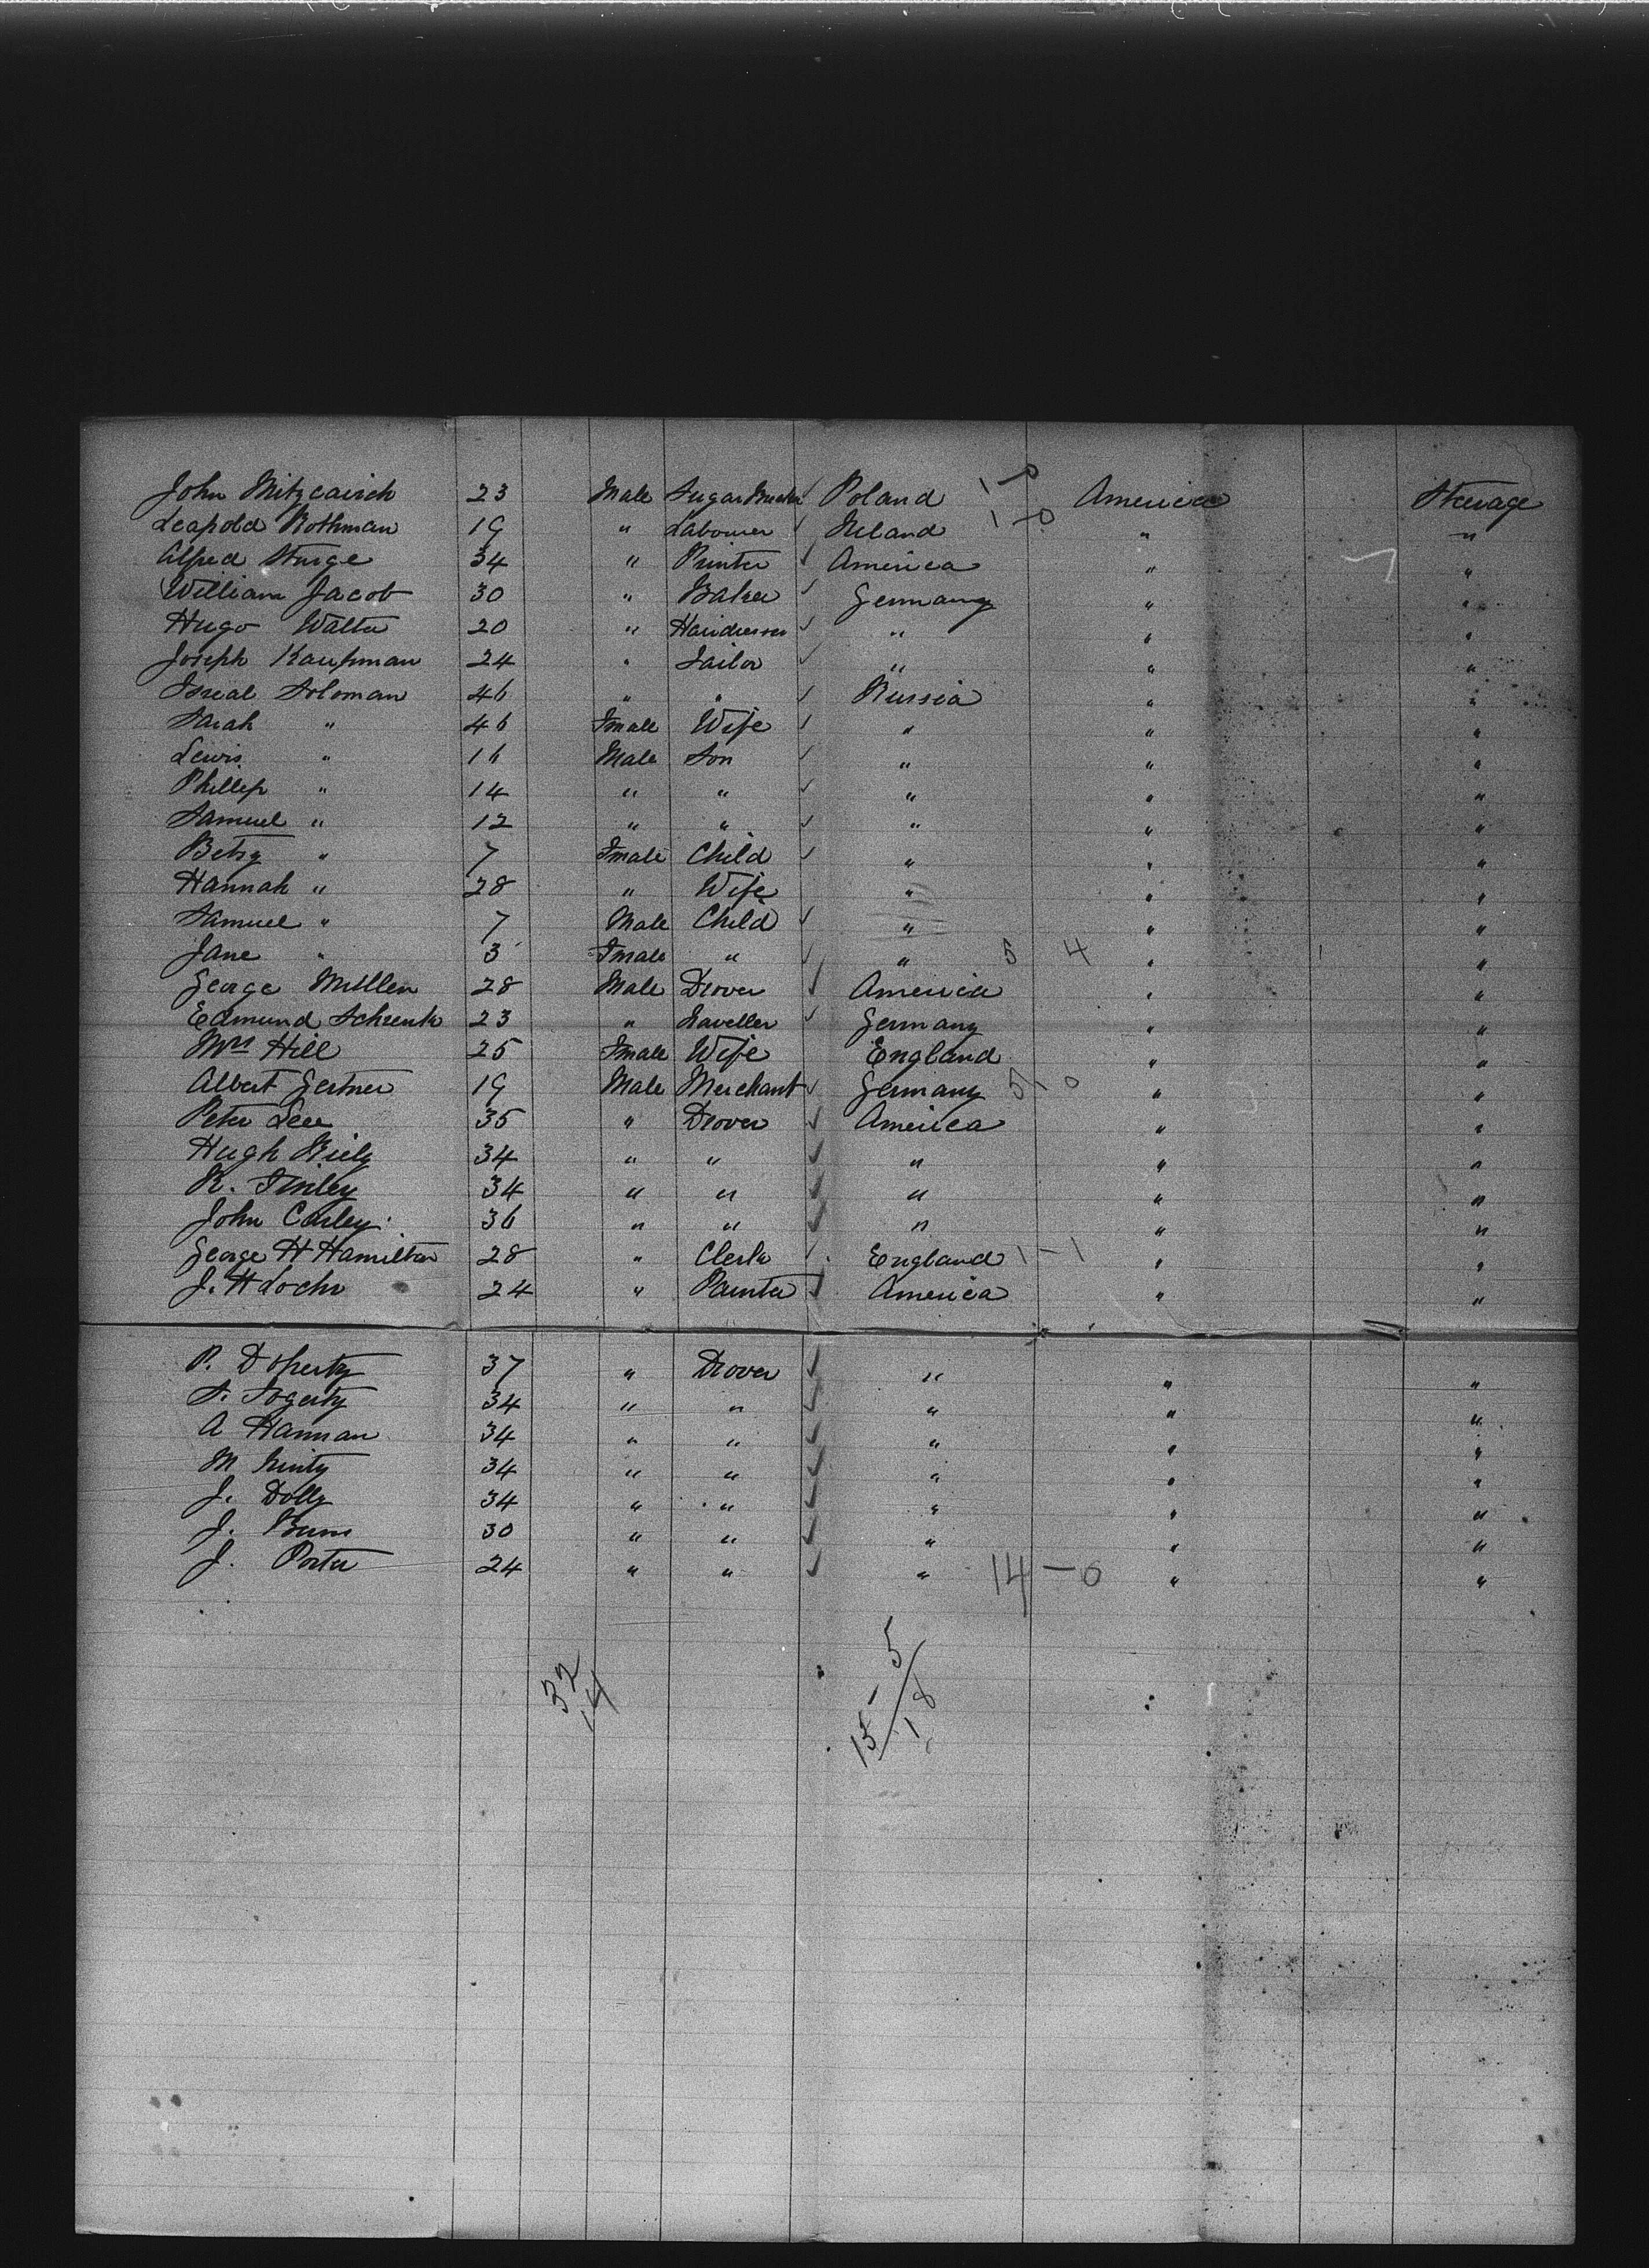 John Mitzcavich 23 Male Sugar Breaker Poland 1-0 America Steerage
Leapold Rothman 19 " Labourer Ireland 1-0 " "
Alfred Sturge 34 " Printer America " "
William Jacob 30 " Baker Germany " "
Hugo Walter 20 " Hairdresser " " "
Joseph Kaufman 24 " Tailor " " "
Isreal Soloman 46 " " Russia " "
Sarah " 46 Fmale Wife " " "
Lewis " 16 Male Son " " "
Phillip " 14 " " " " "
Samuel " 12 " " " " "
Betsy " 7 Fmale Child " " "
Hannah " 28 " Wife " " "
Samuel " 7 Male Child " " "
Jane " 3 Fmale " " 5 4 " "
George Mullen 28 Male Drover America " "
Edmund Schrenk 23 " Traveller Germany " "
Mrs Hill 25 Fmale Wife England " "
Albert Gertner 19 Male Merchant Germany 5-0 " "
Peter Lee 35 " Drover America " "
Hugh Riely 34 " " " " "
R. Finley 34 " " " " "
John Curley 36 " " " " "
George H Hamilton 28 " Clerk England 1-1 " "
J. H Lochr 24 " Painter America " "
P. Doherty 37 " Drover " " "
F. Fogerty 34 " " " " "
A Hannan 34 " " " " "
M Ginty 34 " " " " "
J. Dolly 34 " " " " "
J. Burns 30 " " " " "
J. Porter 24 " " " 14-0 " "
32
14
15-5
18